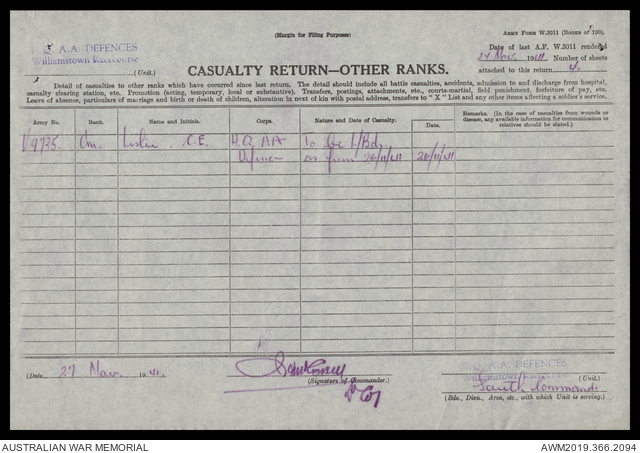 (Margin for Filing Purposes)
ARMY FORM W.3011 (BOOKS OF 100).
A.A. DEFENCES
Williamstown Racecourse
(Unit.)
Date of last A.F. W.3011 rendered
24 Nov. 1941. Number of sheets
attached to this return 4.
CASUALTY RETURN—OTHER RANKS.
Detail of casualties to other ranks which have occurred since last return. The detail should include all battle casualties, accidents, admission to and discharge from hospital,
casualty clearing station, etc. Promotion (acting, temporary, local or substantive). Transfers, postings, attachments, etc., courts-martial, field punishment, forfeiture of pay, etc.
Leave of absence, particulars of marriage and birth or death of children, alteration in next of kin with postal address, transfers to "X" List and any other items affecting a soldier's service.
Army No. Rank. Name and Initials. Corps. Nature and Date of Casualty. Date. Remarks. (In the case of casualties from wounds or disease, any available information for communication to relatives should be stated.)
V9735. Gnr. Leslie. C.E. H.Q. AA To be L/Bdr.
Defences as from 26/11/41 26/11/41
(Date 27 Nov. 1941.
(Signature of Commander.)
A.A. DEFENCES
Williamstown Racecourse
(Unit.)
South Command
(Bde., Divn., Area, etc., with which Unit is serving.)
AUSTRALIAN WAR MEMORIAL AWM2019.366.2094